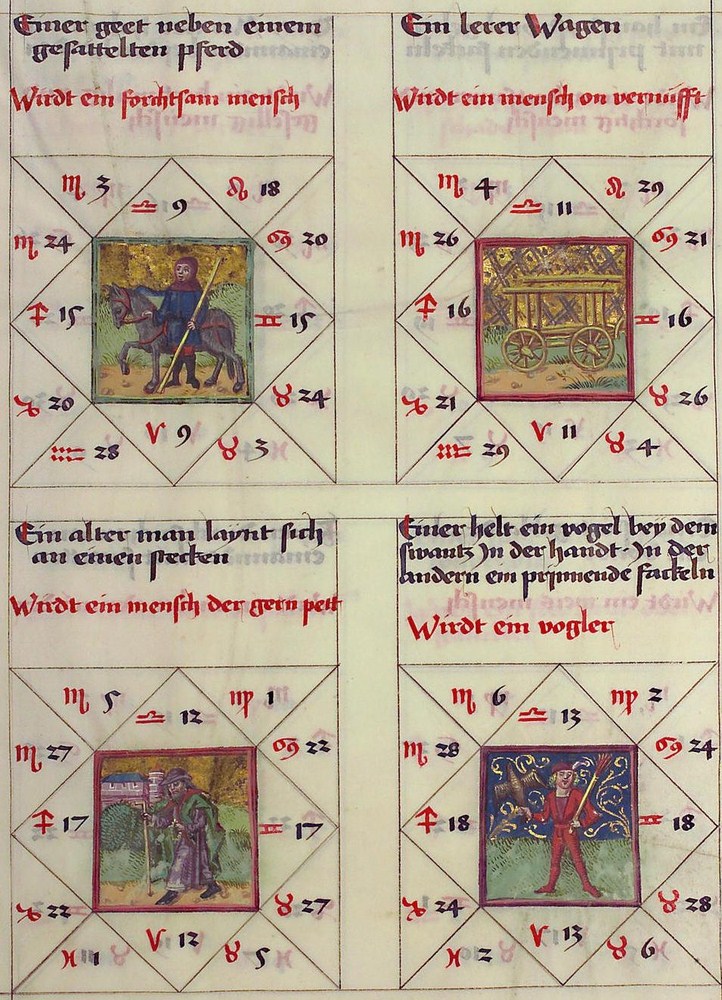 Einer geet neben einem
gesattelten pferd
Wirdt ein forchtsam mensch
♏ 3
♎ 9
♌ 18
♏ 24
♋ 20
♐ 15
♊ 15
♑ 20
♉ 24
♒ 28
♈ 9
♉ 3
Ein lerer Wagen
Wirdt ein mensch on vernüfft
♏ 4
♎ 11
♌ 29
♏ 26
♋ 21
♐ 16
♊ 16
♑ 21
♉ 26
♒ 29
♈ 11
♉ 4
Ein alter man laynt sich
an einen stecken
Wirdt ein mensch der gern pett
♏ 5
♎ 12
♍ 1
♏ 27
♋ 22
♐ 17
♊ 17
♑ 22
♉ 27
♓ 1
♈ 12
♉ 5
Einer helt ein vogel bey dem
swantz Jn der handt · Jn der
andern ein prinnende fackeln
Wirdt ein vogler
♏ 6
♎ 13
♍ 2
♏ 28
♋ 24
♐ 18
♊ 18
♑ 24
♉ 28
♓ 2
♈ 13
♉ 6